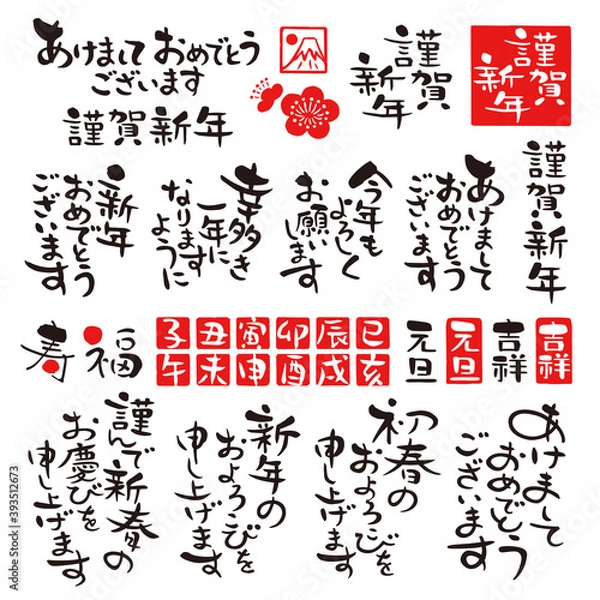 あけまして おめでとう
ございます
謹賀新年
謹賀
新年
謹賀
新年
新年
おめでとう
ございます
幸多き
一年に
なります
ように
今年も
よろしく
お願い
します
あけまして
おめでとう
ございます
謹賀新年
寿
福
子丑寅卯辰巳
午未申酉戌亥
元旦
元旦
吉祥
吉祥
謹んで新春の
お慶びを
申し上げます
新年の
およろこびを
申し上げます
初春の
およろこびを
申し上げます
あけまして
おめでとう
ございます
Adobe Stock | #393512673
Adobe Stock